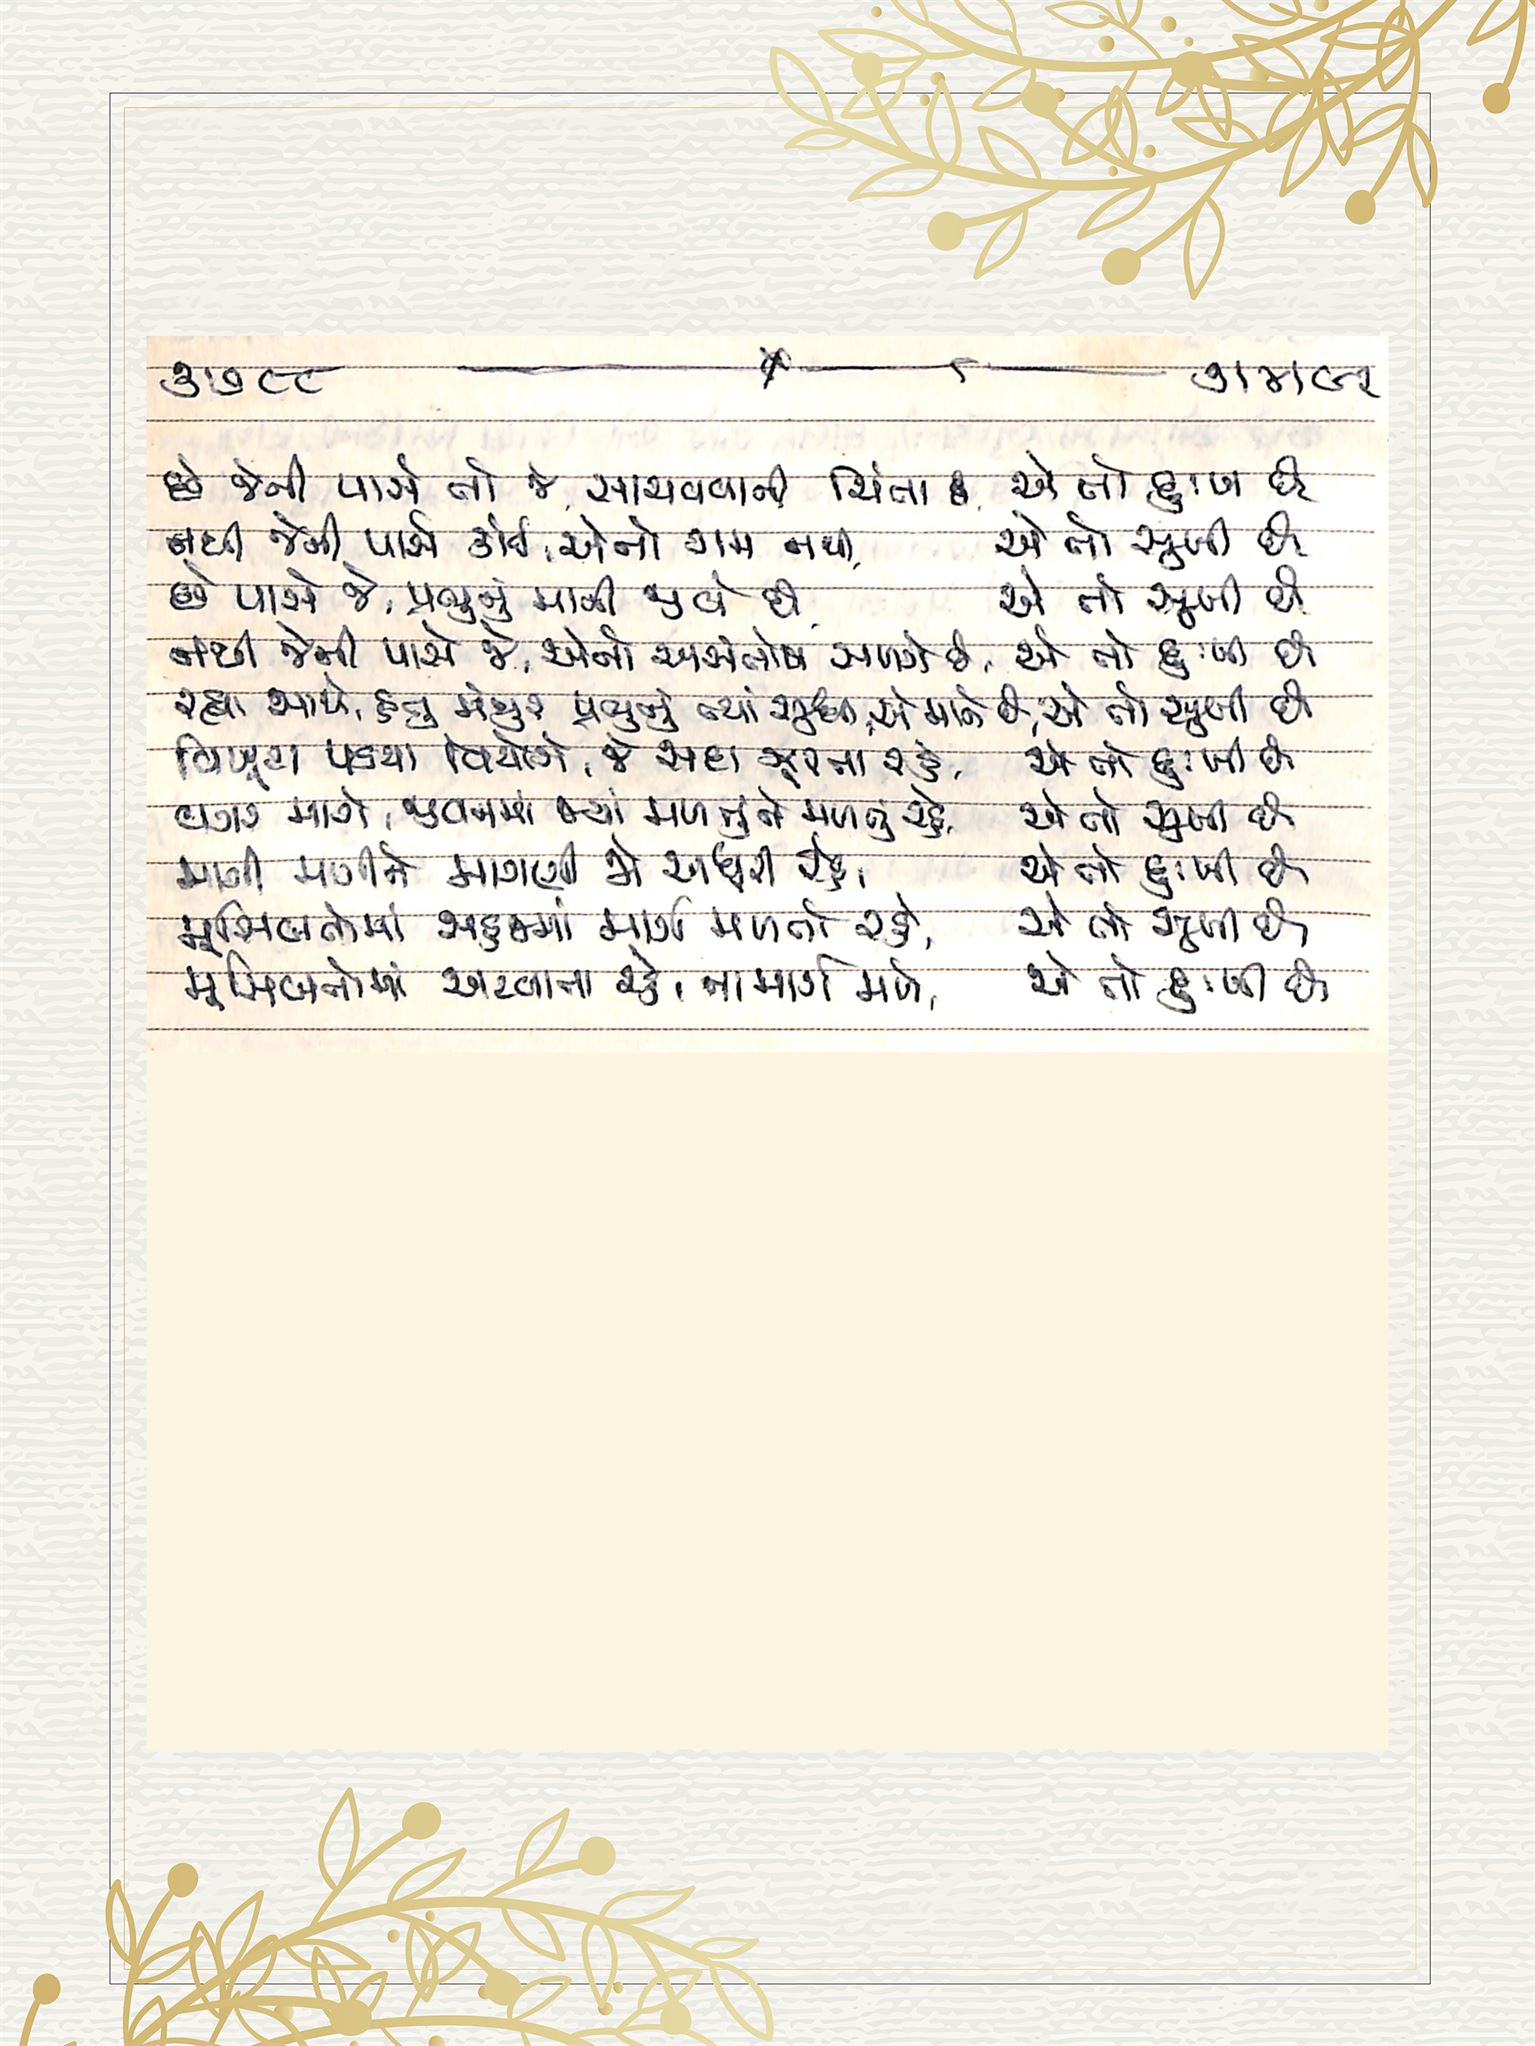 ૩૭૮૮ ૩।૪।૯૨
છે જેની પાસે તો જે, સાચવવાની ચિંતા છે, એ તો દુઃખી છે
નથી જેની પાસે કાંઈ, એનો ગમ નથી, એ તો સુખી છે
છે પાસે જે, પ્રભુનું માની જીવે છે, એ તો સુખી છે
નથી જેની પાસે જે, એનો અસંતોષ સળગે છે, એ તો દુઃખી છે
રહ્યા સાથે, હતુ મંજુર પ્રભુનું ત્યાં સુધી, એ માને છે, એ તો સુખી છે
વિખૂટા પડયા વિયોગે, જે સદા ઝૂરતા રહે, એ તો દુઃખી છે
વગર માગે, જીવનમાં જ્યાં મળતું ને મળતું રહે, એ તો સુખી છે
માગી માગીને માગણી જો અધૂરી રહે, એ તો દુઃખી છે
મૂસિબતોમાં માર્ગ મળતો રહે, એ તો સુખી છે
મૂસિબતોમાં અટવાતા રહે, ના માર્ગ મળે, એ તો દુઃખી છે